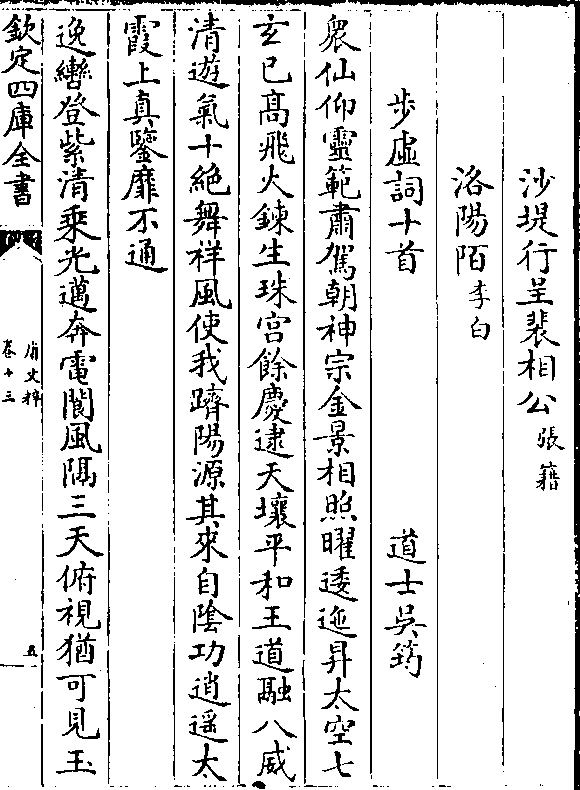 沙堤行呈裴相公張籍
洛陽陌李白
步虛詞十首 道士吳筠
衆仙仰靈範肅駕朝神宗金景相照曜逶迤昇太空七
玄已高飛火鍊生珠宮餘慶逮天壤平和王道融八威
清遊氣十絶舞祥風使我躋陽源其來自陰功逍遥太
霞上真鑒靡不通
逸轡登紫清乘光邁奔電閬風隔三天俯視猶可見玉
欽定四庫全書
唐文粹
卷十三
五